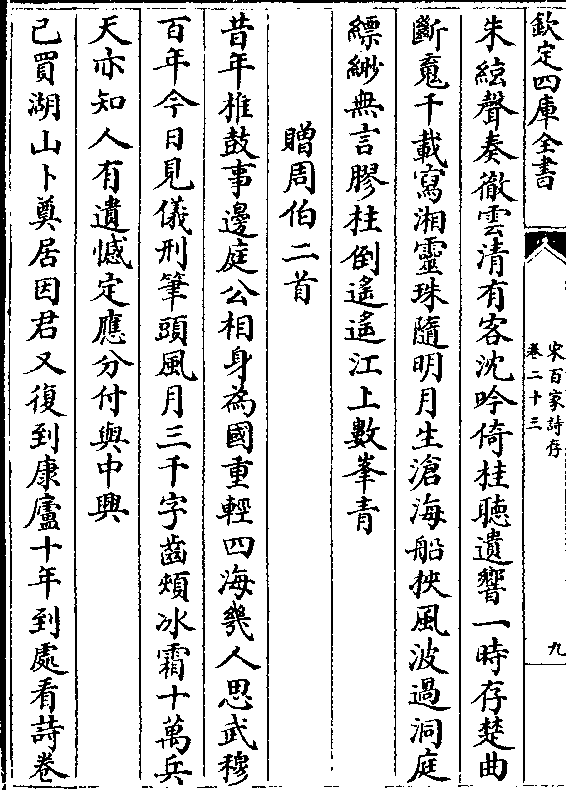 欽定四庫全書
宋百家詩存
卷二十三
九
朱絃聲奏徹雲清有客沈吟倚桂聽遺響一時存楚曲
斷䰟千載寫湘靈珠隨明月生滄海船挾風波過洞庭
縹緲無言膠柱倒遙遙江上數峯青
贈周伯二首
昔年椎鼓事邊庭公相身為國重輕四海幾人思武穆
百年今日見儀刑筆頭風月三千字齒頰冰霜十萬兵
天亦知人有遺憾定應分付與中興
已買湖山卜奠居因君又復到康廬十年到處看詩卷